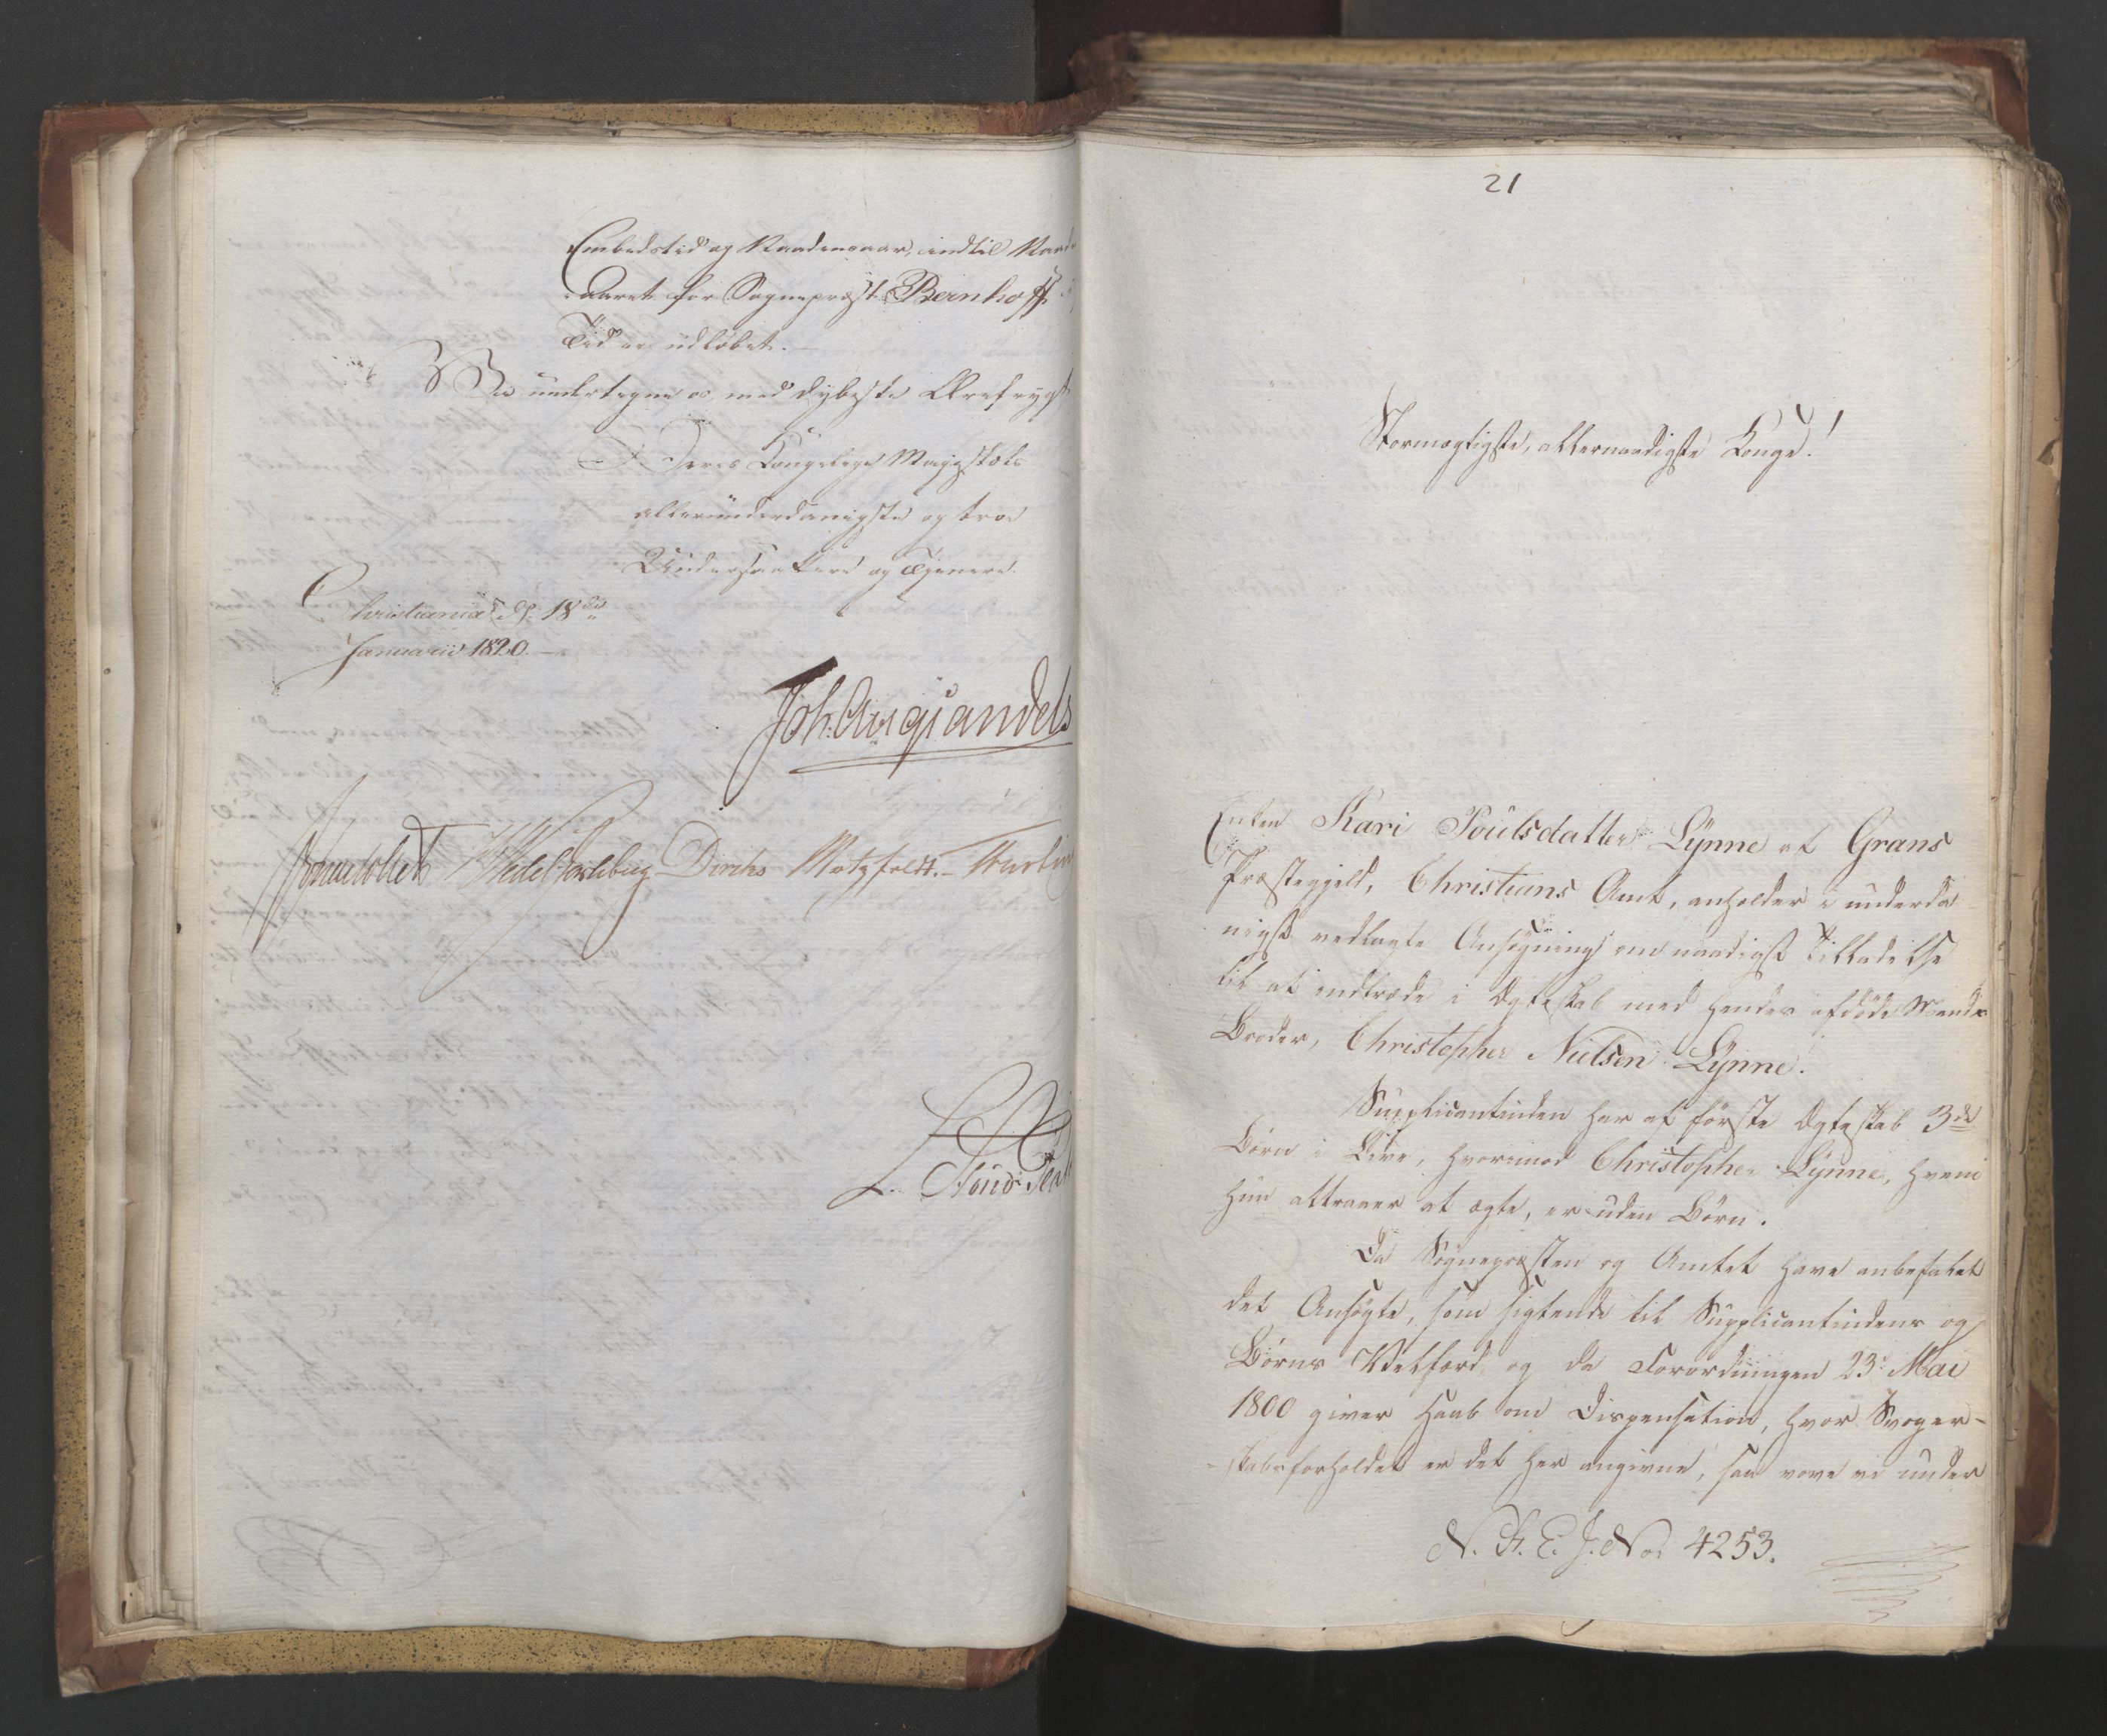 Embedstid og Naadensaar, indtil Naade
aaret for Sognepræst Bernhoffs
Tid er udløbet. —
Vi undertegne os med dybeste Ærefrygt
Deres Kongelige Majestæts
allerunderdanigste og troe
Undersaatter og Tjenere.
Christiania d. 18de
Januarii 1820. —
Joh: Aug: Sandels
Sommerhielm HWedel Jarlsberg Diriks Motzfeldt. —
L. Stoud Plat
21
Stormægtigste, allernaadigste Konge!
Enken Kari Poulsdatter Lÿnne af Grans
Præstegjeld, Christians Amt, anholder i underda
nigst vedlagte Ansøgning om naadigst Tilladelse
til at indtræde i Ægteskab med hendes afdøde Mands
Broder, Christopher Nielsen Lÿnne.
Supplicantinden har af første Ægteskab 3de
Børn i Live, hvorimod Christopher Lÿnne, hvem
hun attraaer at ægte, er uden Børn.
Da Sognepræsten og Amtet have anbefalet
det Ansøgte, som sigtende til Supplicantindens og
Børns Velfærd, og da Forordningen 23. Mai
1800 giver Haab om Dispensation, hvor Svoger-
skabsforholdet er det her angivne, saa vove vi under
N. F. E. J. No. 4253.